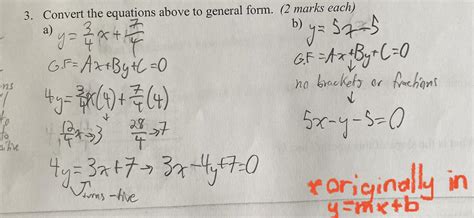 3. Convert the equations above to general form. (2 marks each)
a) y = 3/4 x + 7/4
G.F = Ax+By+C=0
4y = 3/4 x(4) + 7/4 (4)
12/4 x → 3   28/4 → 7
4y = 3x+7 → 3x-4y+7=0
turns -tive
b) y = 5x-5
G.F = Ax+By+C=0
no brackets or fractions
5x-y-5=0
* originally in
y=mx+b